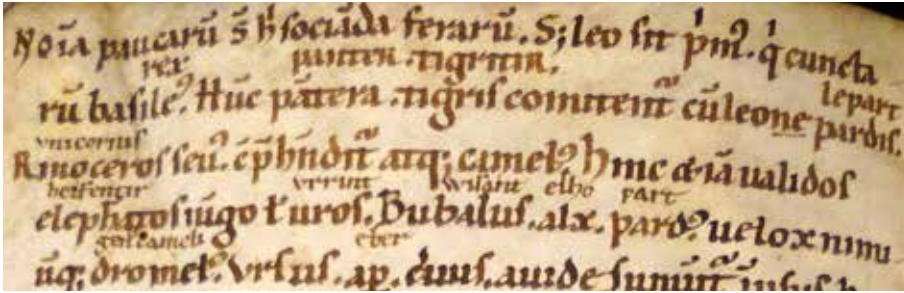 Nōia paucarū s̄ h̄ sociāda ferarū. S; leo sit pͥmꝰ. qͥ cuncta
rex panter. tigritir. lepart
rū basileꝰ. Hūc pātera. tigris comitent᷑ cū leone pardis.
unicornus
Rinoceros seuꝰ. cp̄hndit᷑ atq; camelꝰ h̄inc & iā ualidos
helfentir vrrint wisant elho part
elephātos iūgo ł uros. Bubalus. alx. pardꝰ. uelox nimi
eber
ūq; dromeł. Vrsus. ap̄. c̄uus. auide